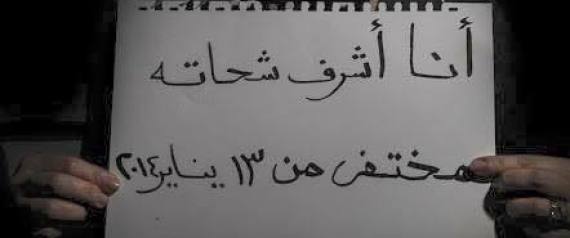 أنا أشرف شحاته
مختفى من ١٣ يناير ٢٠١٤